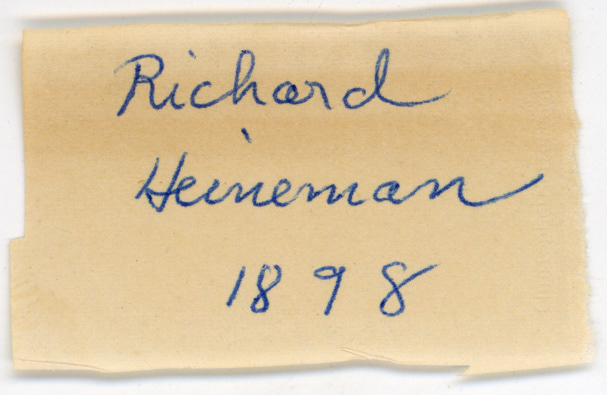 Richard
Heineman
1898